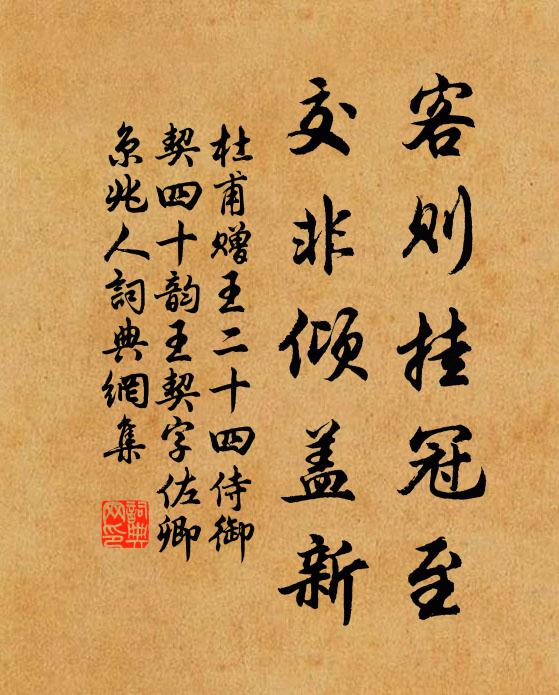 客则挂冠至
交非倾盖新
杜甫赠王二十四侍御
契四十韵王契字佐卿
京兆人词典網集
詞典
网印